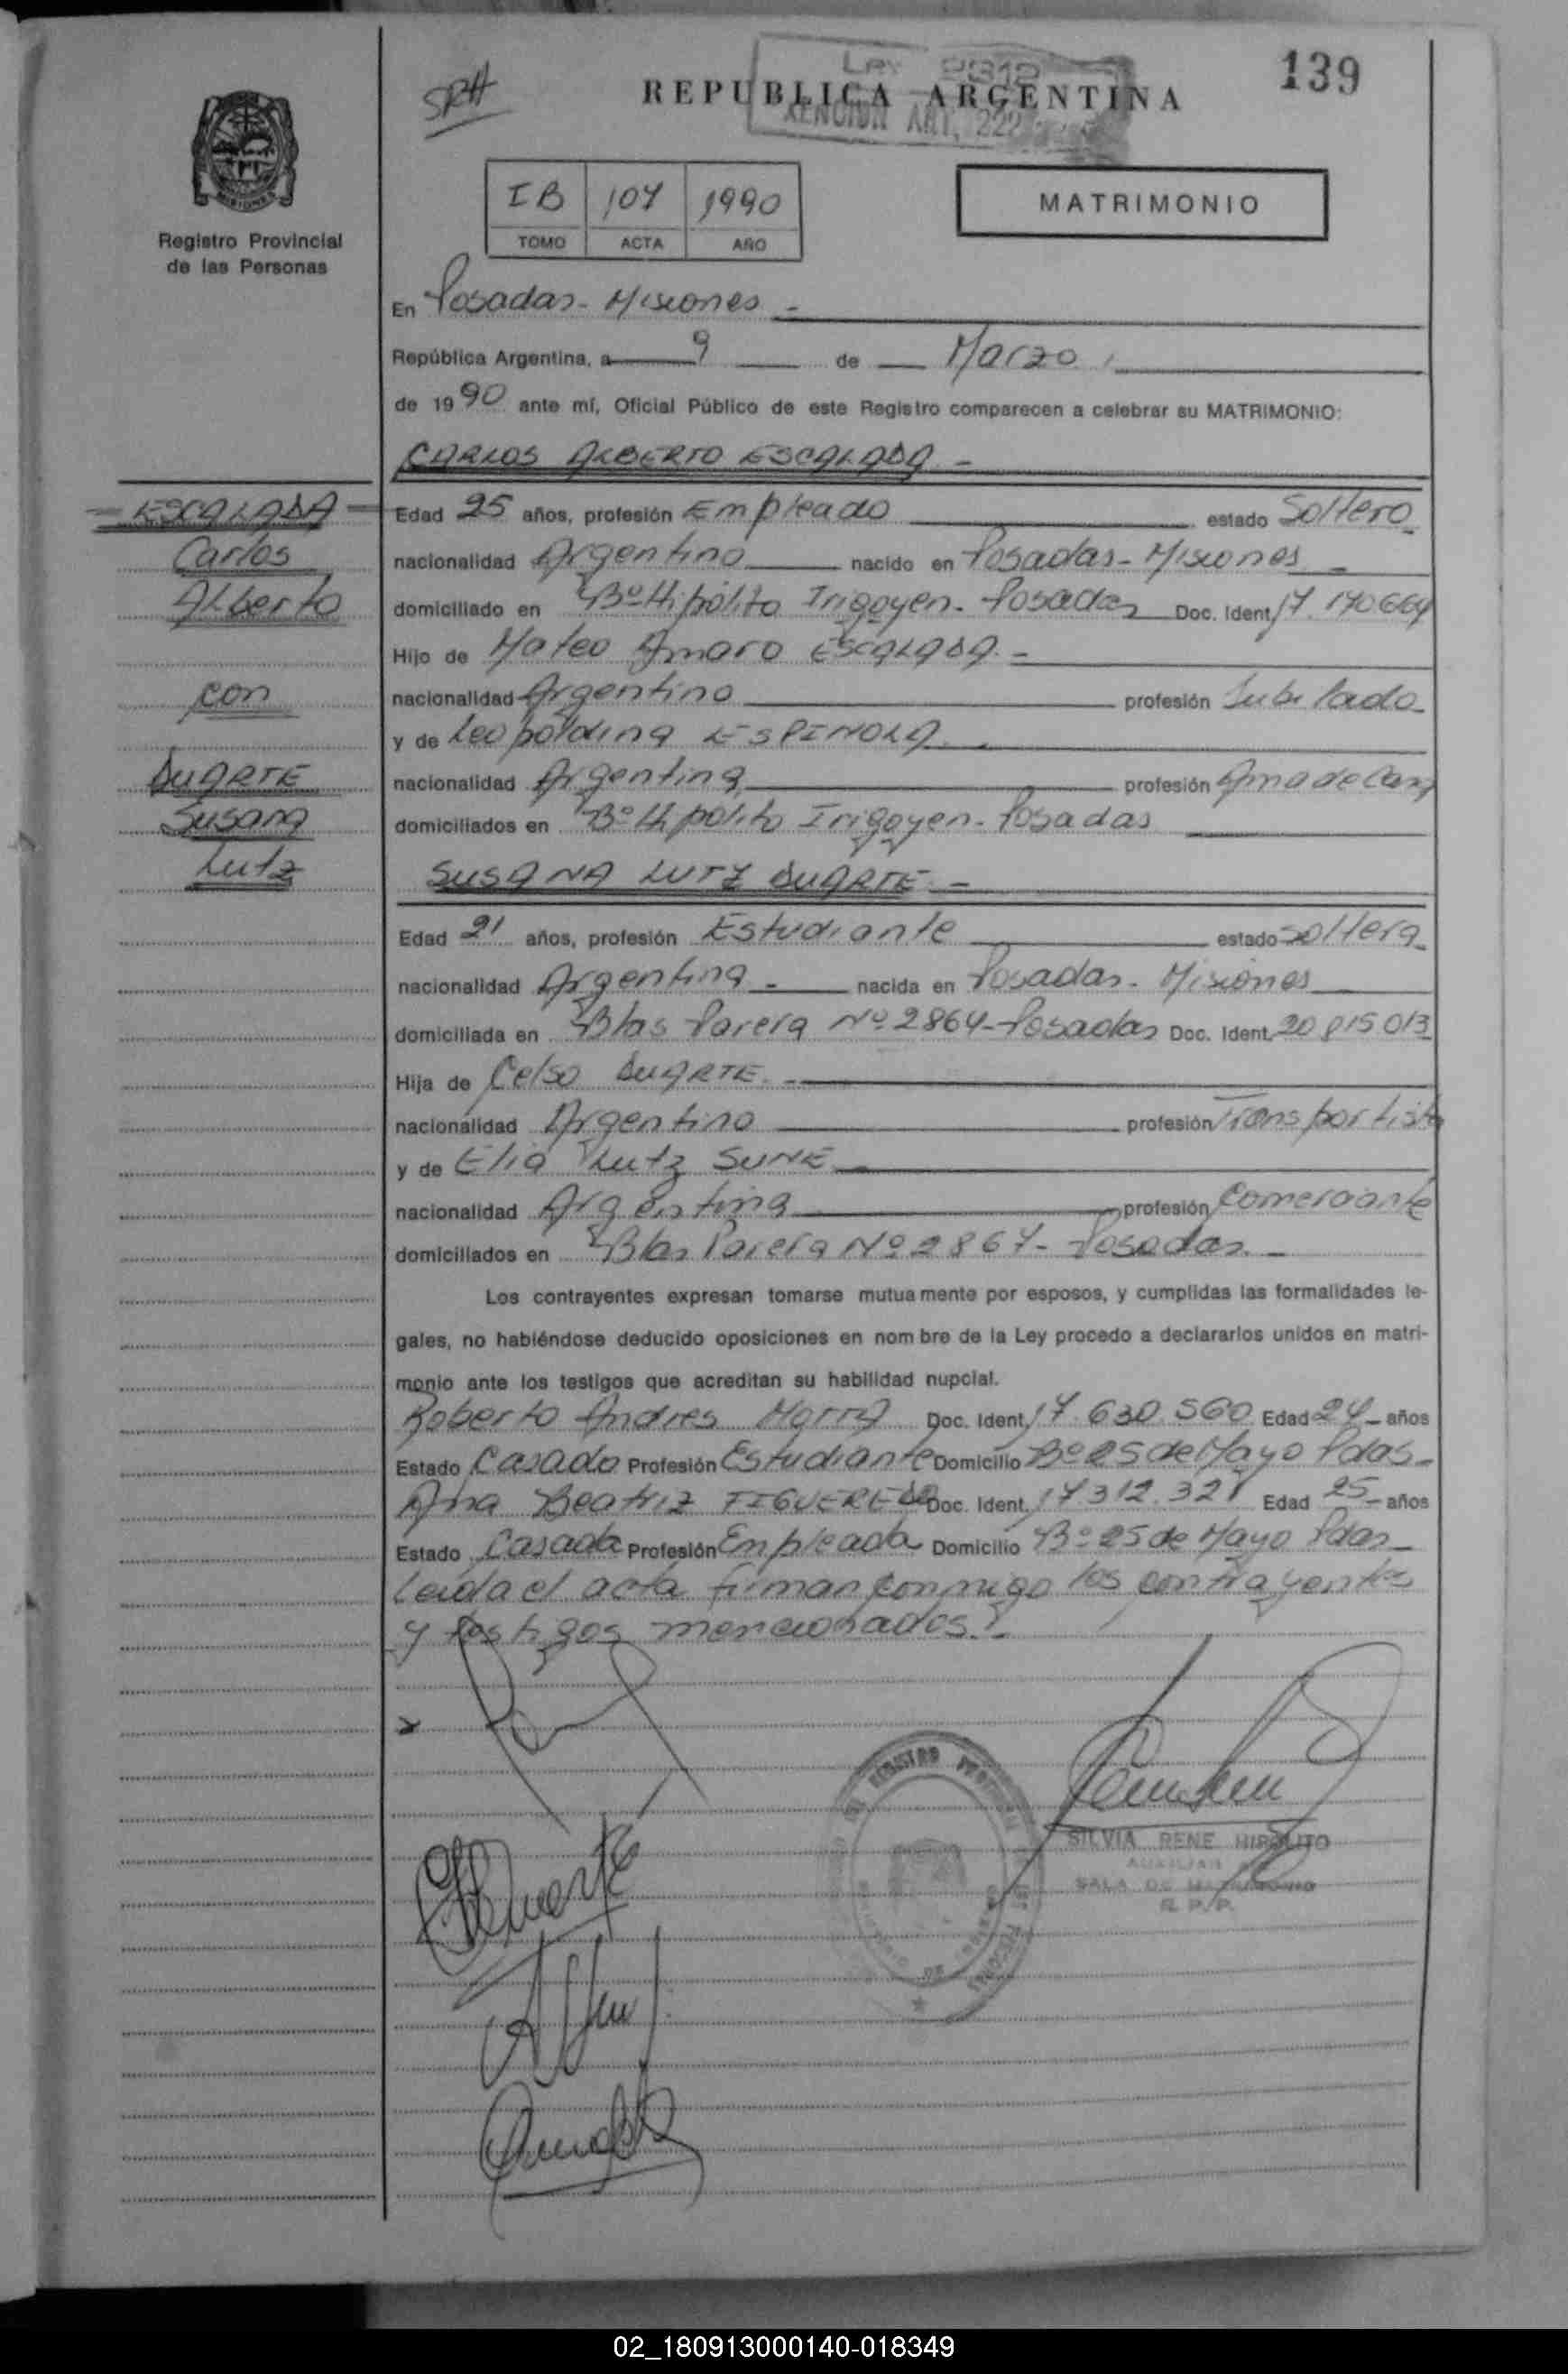 139
SRH
Ley 2312
REPUBLICA ARGENTINA
ART. 222
IB 107 1990
TOMO ACTA AÑO
MATRIMONIO
MISIONES
Registro Provincial
de las Personas
En Posadas - Misiones -
República Argentina, a 9 de Marzo
de 1990 ante mí, Oficial Público de este Registro comparecen a celebrar su MATRIMONIO:
CARLOS ALBERTO ESCALADA -
ESCALADA
Carlos
Alberto
con
DUARTE
Susana
Lutz
Edad 25 años, profesión Empleado estado Soltero
nacionalidad Argentino nacido en Posadas - Misiones
domiciliado en Bº Hipólito Irigoyen - Posadas Doc. Ident. 17.170664
Hijo de Mateo Amaro ESCALADA. -
nacionalidad Argentino profesión Jubilado
y de Leopoldina ESPINOLA.
nacionalidad Argentina profesión Ama de Casa
domiciliados en Bº Hipolito Irigoyen - Posadas
SUSANA LUTZ DUARTE. -
Edad 21 años, profesión Estudiante estado Soltera
nacionalidad Argentina - nacida en Posadas - Misiones
domiciliada en Blas Parera Nº 2864 - Posadas Doc. Ident. 20 815 013
Hija de Celso DUARTE. -
nacionalidad Argentino profesión Transportista
y de Elia Lutz SUNE
nacionalidad Argentina profesión Comerciante
domiciliados en Blas Parera Nº 2867 - Posadas. -
Los contrayentes expresan tomarse mutuamente por esposos, y cumplidas las formalidades le-
gales, no habiéndose deducido oposiciones en nombre de la Ley procedo a declararlos unidos en matri-
monio ante los testigos que acreditan su habilidad nupcial.
Roberto Andres Doc. Ident. 17.630.560 Edad 24 años
Estado Casado Profesión Estudiante Domicilio Bº 25 de Mayo Pdas -
Ana Beatriz FIGUEREDO Doc. Ident. 17.312.321 Edad 25 años
Estado Casada Profesión Empleada Domicilio Bº 25 de Mayo Pdas -
Leida el acta firman conmigo los contrayentes
y testigos mencionados. -
SILVIA RENE HIPOLITO
AUXILIAR
SALA DE MATRIMONIO
R. P. P.
02_180913000140-018349